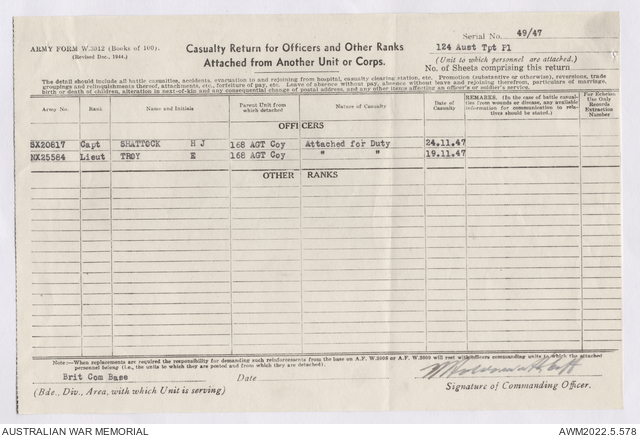 Serial No. 49/47
ARMY FORM W.3012 (Books of 100).
(Revised Dec., 1944.)
Casualty Return for Officers and Other Ranks
Attached from Another Unit or Corps.
124 Aust Tpt Pl
(Unit to which personnel are attached.)
No. of Sheets comprising this return
The detail should include all battle casualties, accidents, evacuation to and rejoining from hospital, casualty clearing station, etc. Promotion (substantive or otherwise), reversions, trade
groupings and relinquishments thereof, attachments, etc., forfeiture of pay, etc. Leave of absence without pay, absence without leave and rejoining therefrom, particulars of marriage,
birth or death of children, alteration in next-of-kin and any consequential change of postal address, and any other items affecting an officer's or soldier's service.
Army No. Rank Name and Initials Parent Unit from which detached Nature of Casualty Date of Casualty REMARKS. (In the case of battle casualties from wounds or disease, any available information for communication to relatives should be stated.) For Echelon Use Only Records Extraction Number
OFFICERS
SX20617 Capt SHATTOCK H J 168 AGT Coy Attached for Duty 24.11.47
NX25584 Lieut TROY E 168 AGT Coy " " 19.11.47
OTHER RANKS
Note:—When replacements are required the responsibility for demanding such reinforcements from the base on A.F. W.3008 or A.F. W.3009 will rest with officers commanding units to which the attached
personnel belong (i.e., the units to which they are posted and from which they are detached).
Brit Com Base Date
(Bde., Div., Area, with which Unit is serving) Signature of Commanding Officer.
AUSTRALIAN WAR MEMORIAL AWM2022.5.578